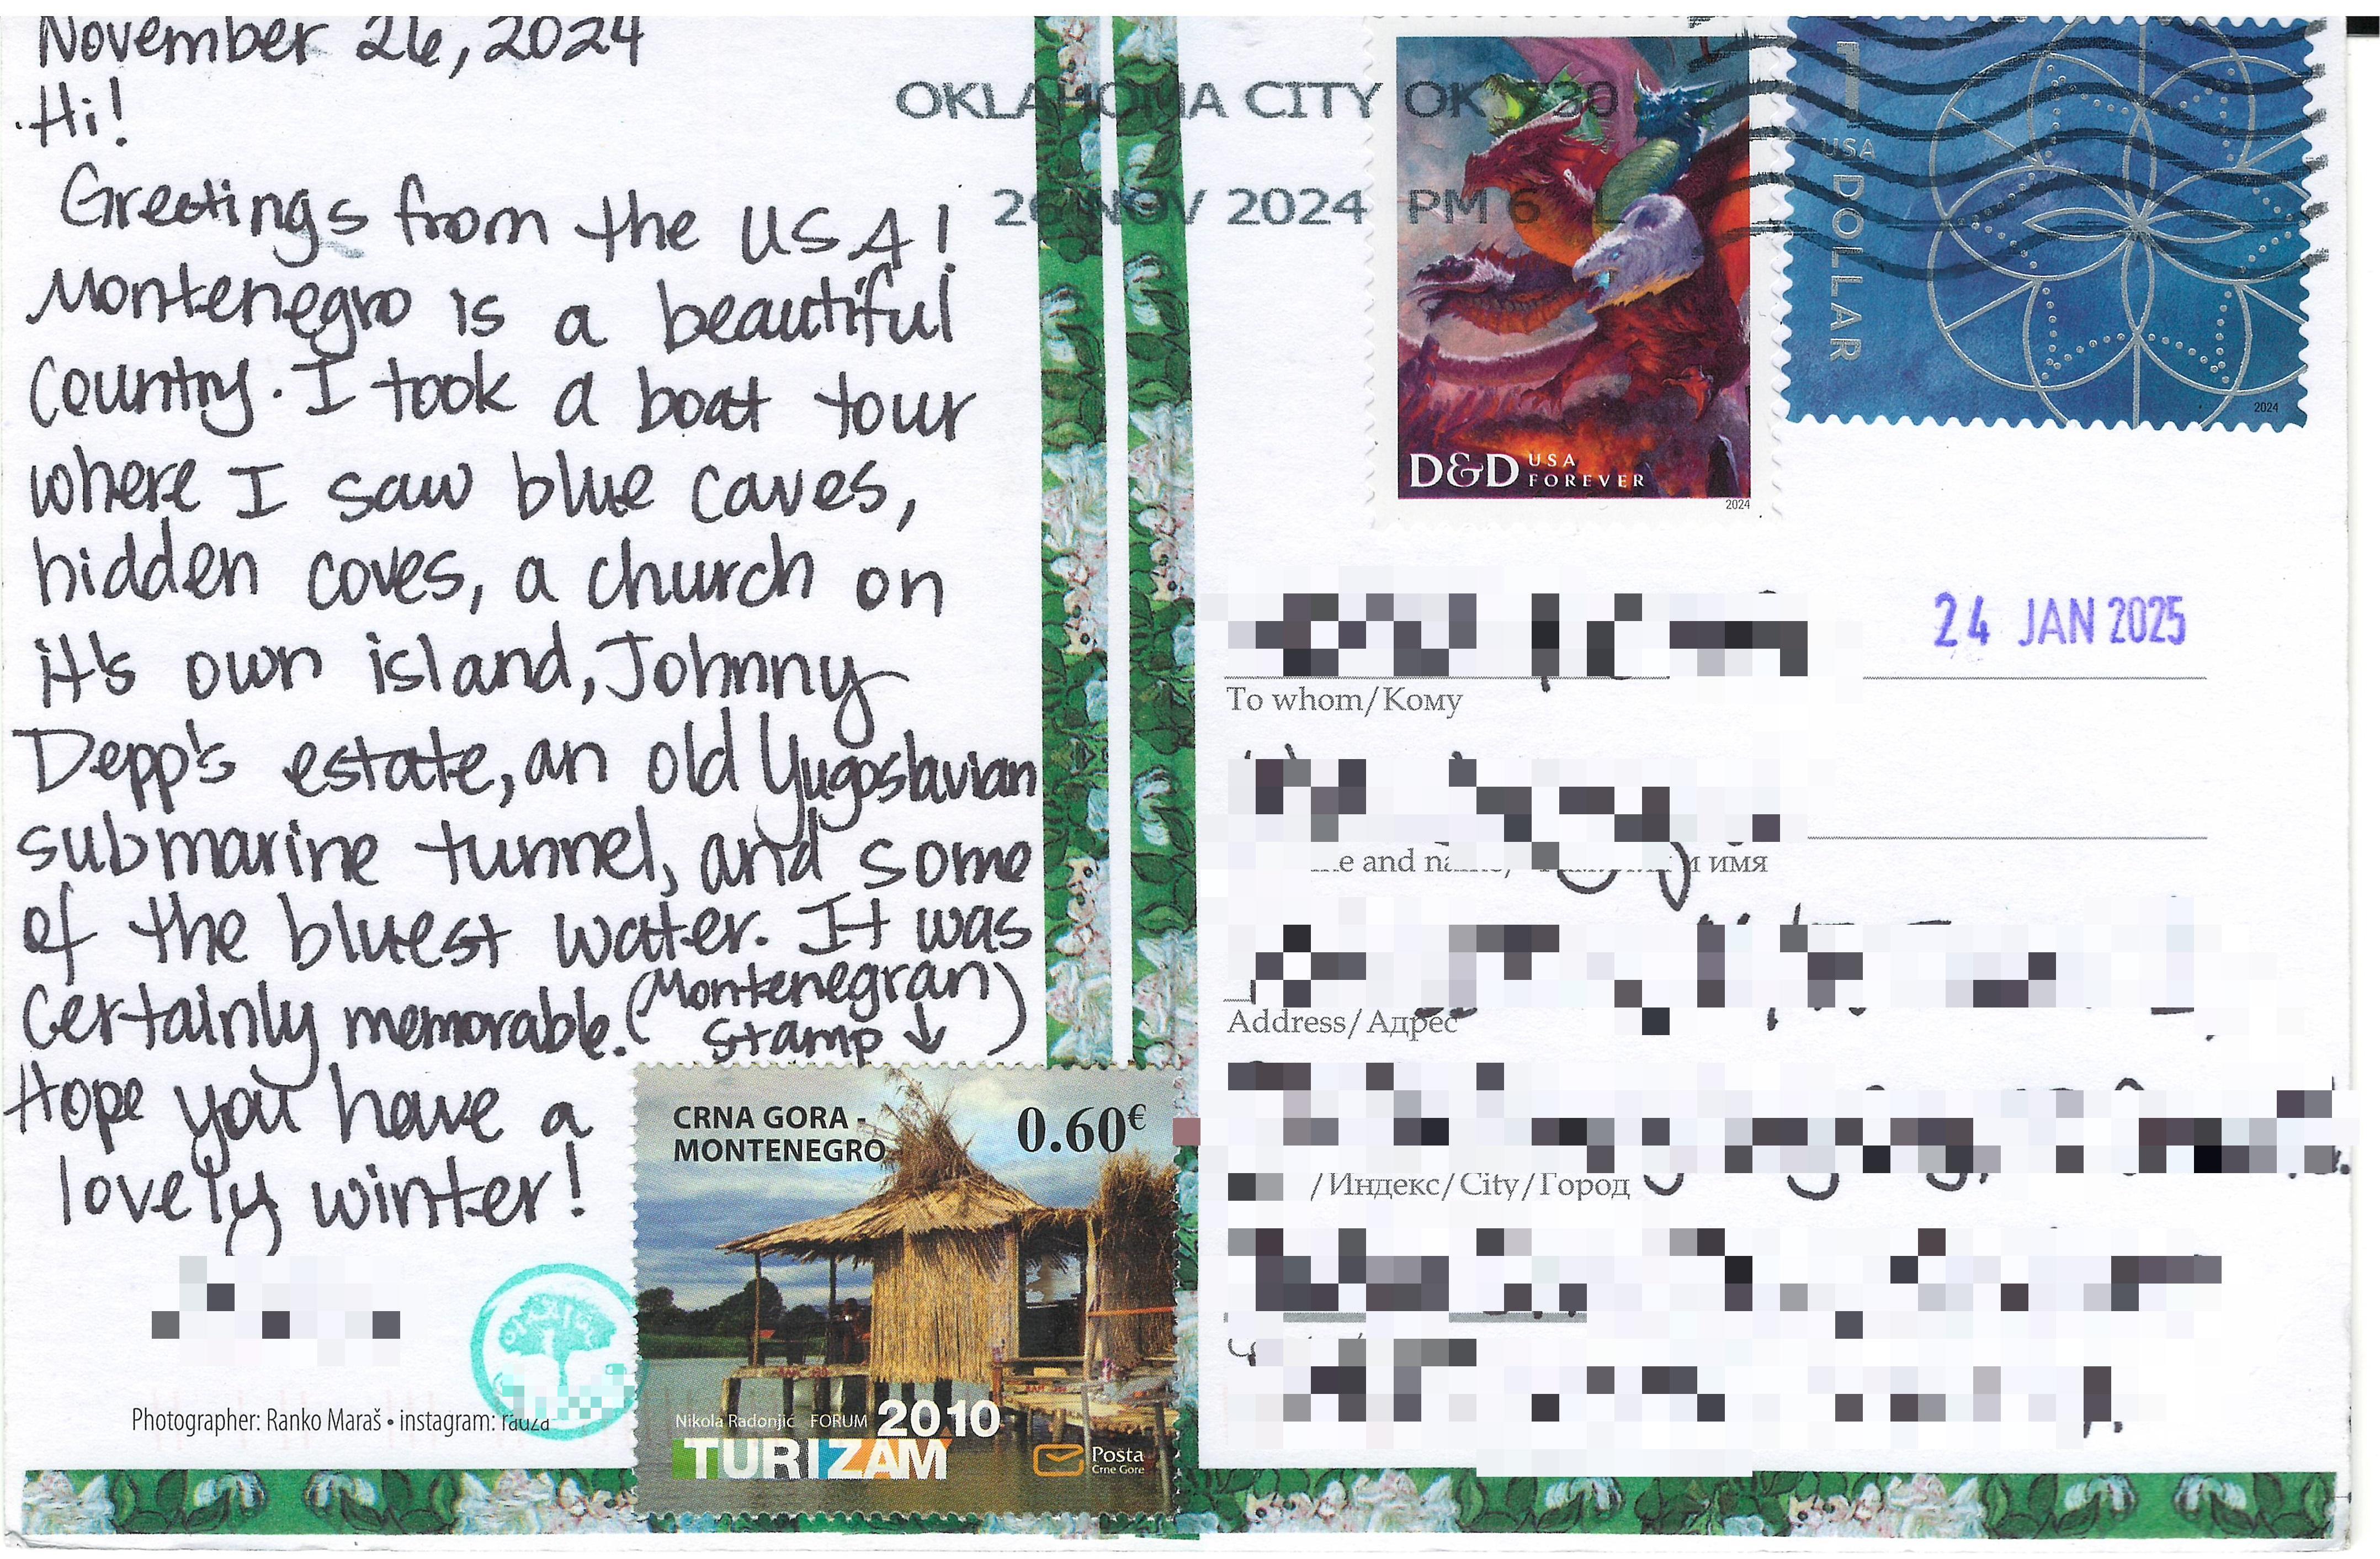 November 26, 2024
Hi!
Greetings from the USA!
Montenegro is a beautiful
country. I took a boat tour
where I saw blue caves,
hidden coves, a church on
it's own island, Johnny
Depp's estate, an old Yugoslavian
submarine tunnel, and some
of the bluest water. It was
certainly memorable. (Montenegran
stamp ↓)
Hope you have a
lovely winter!
CRNA GORA -
MONTENEGRO
0.60€
Nikola Radonjić FORUM 2010
TURIZAM
Pošta
Crne Gore
Photographer: Ranko Maraš • instagram: rauza
OKLAHOMA CITY OK 730
26 NOV 2024 PM 6 L
D&D USA
FOREVER
2024
1
USA
DOLLAR
2024
24 JAN 2025
To whom/Кому
and и имя
Address/Адрес
/Индекс/City/Город